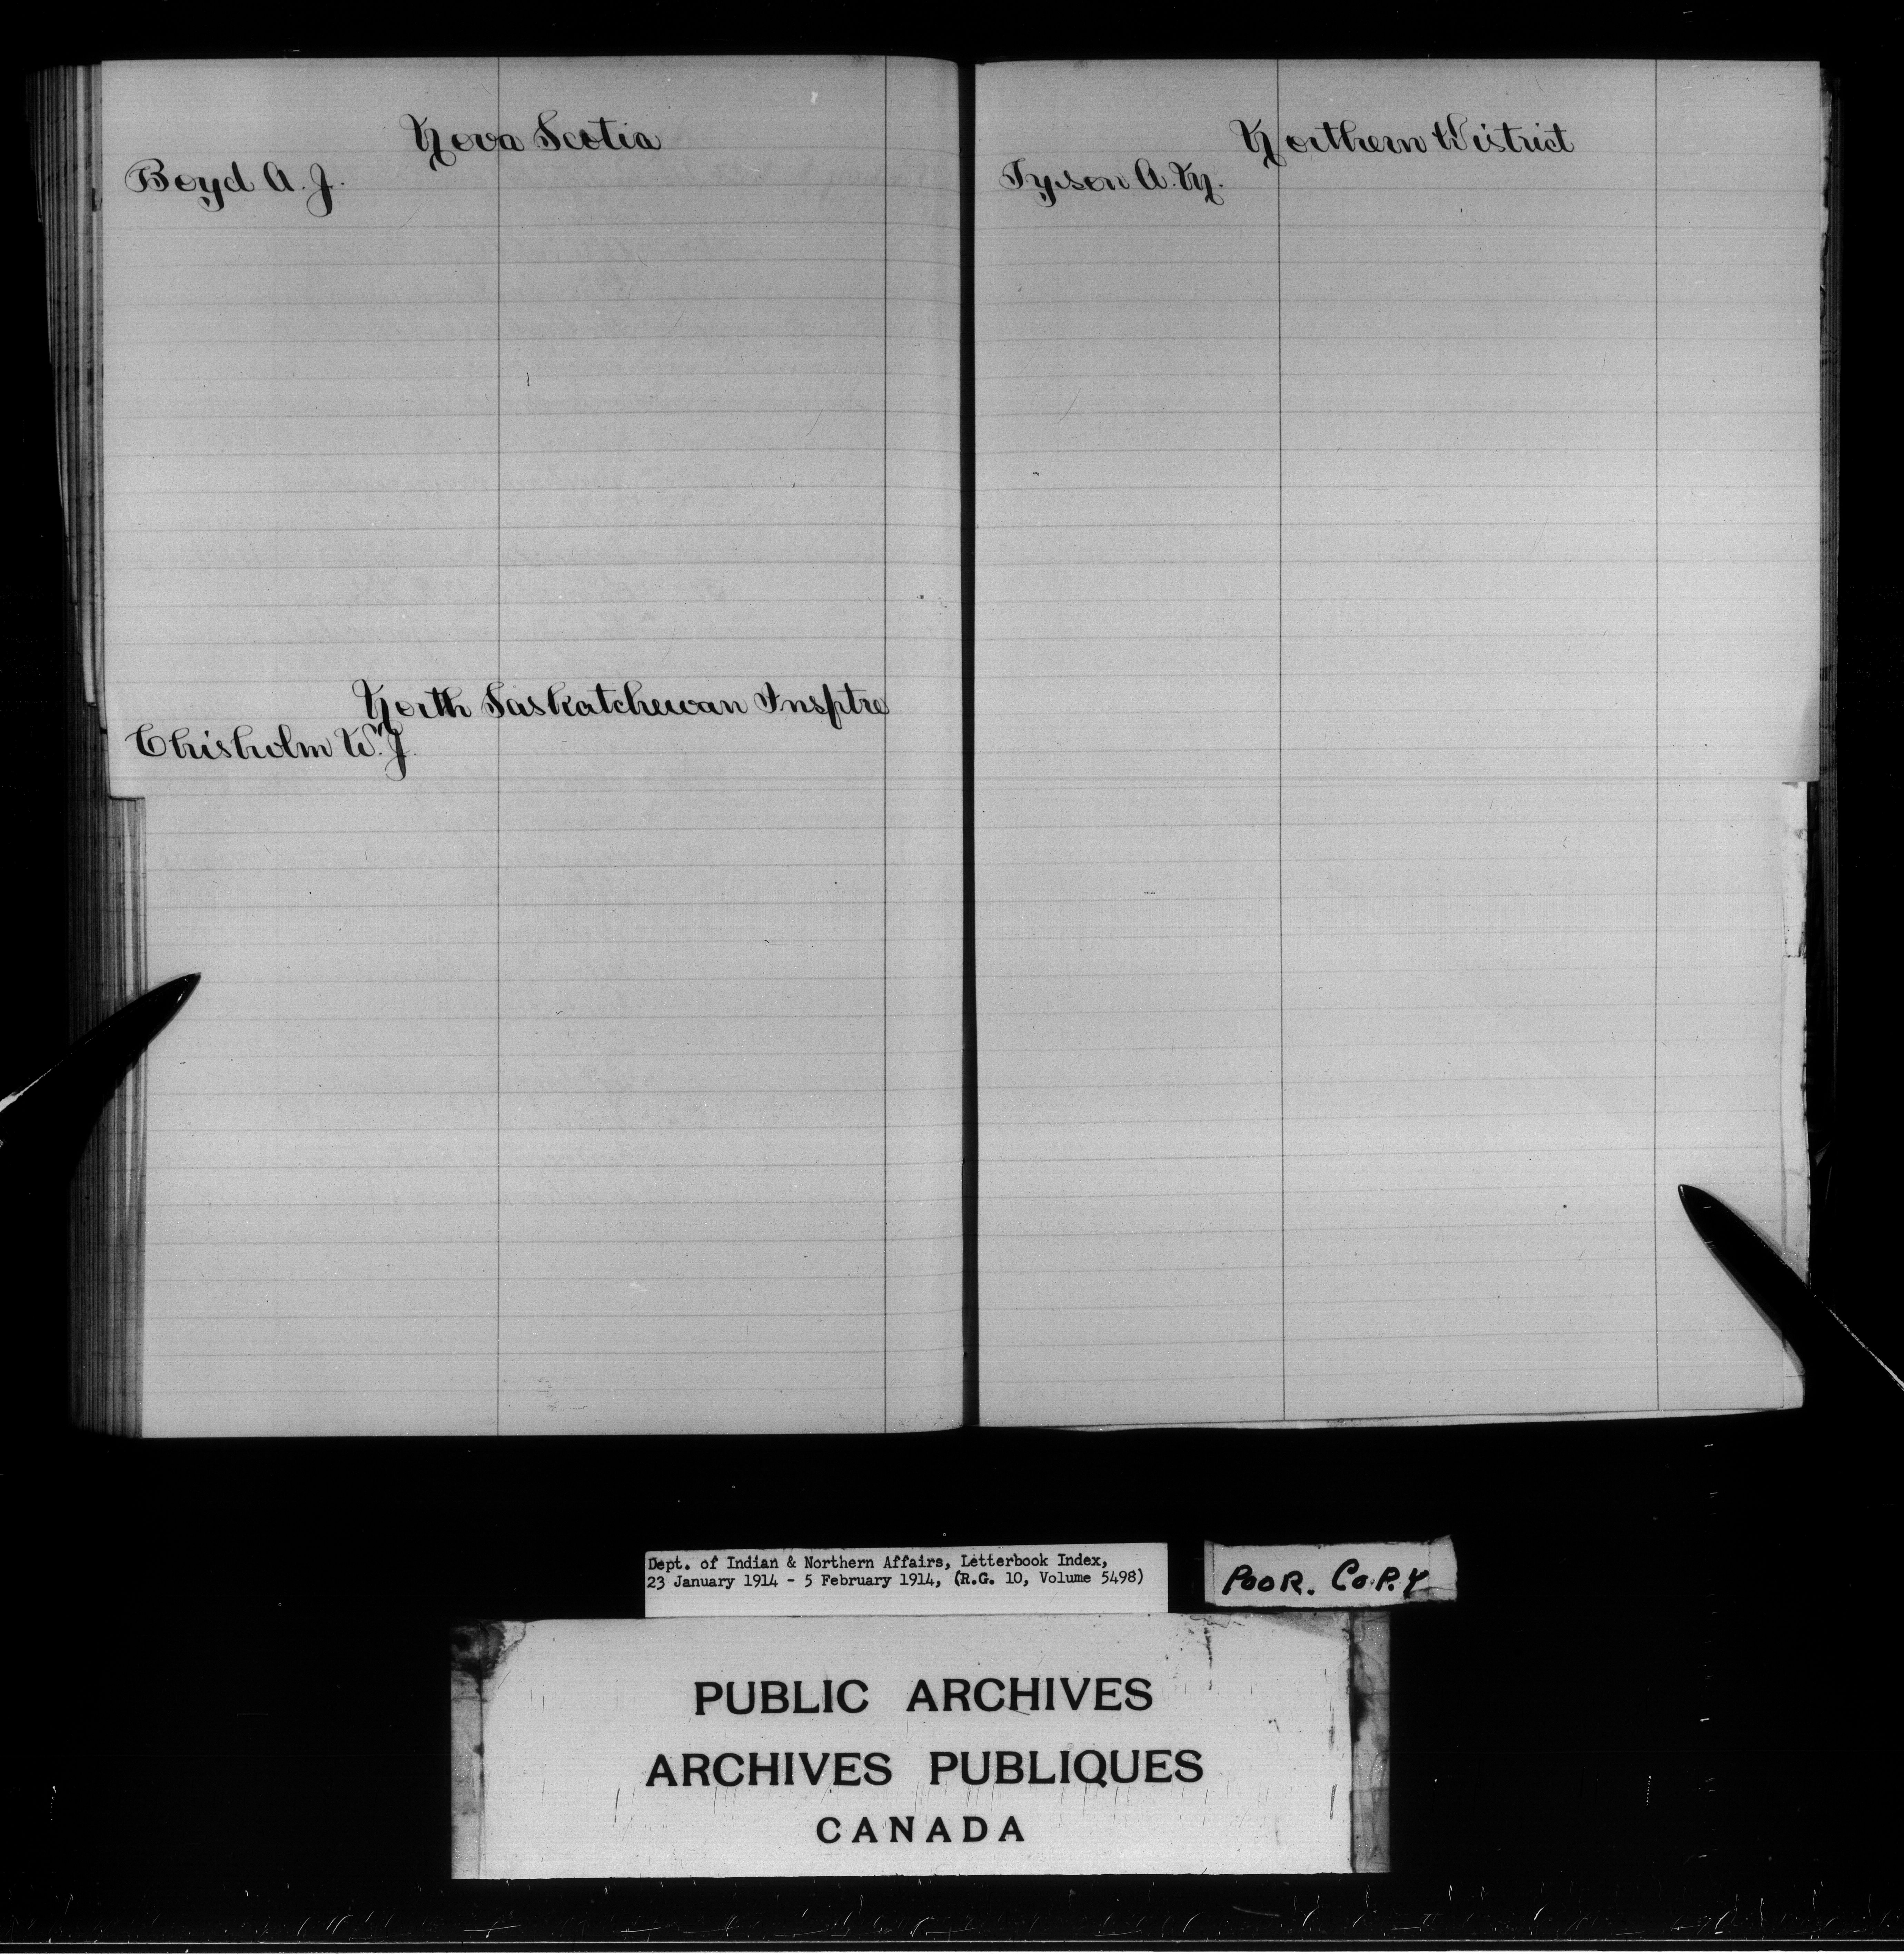 Nova Scotia
Boyd A. J.
North Saskatchewan Insptre
Chisholm W. J.
Northern District
Tyson A. M.
Dept. of Indian & Northern Affairs, Letterbook Index,
23 January 1914 - 5 February 1914, (R.G. 10, Volume 5498)
POOR. COPY
PUBLIC ARCHIVES
ARCHIVES PUBLIQUES
CANADA